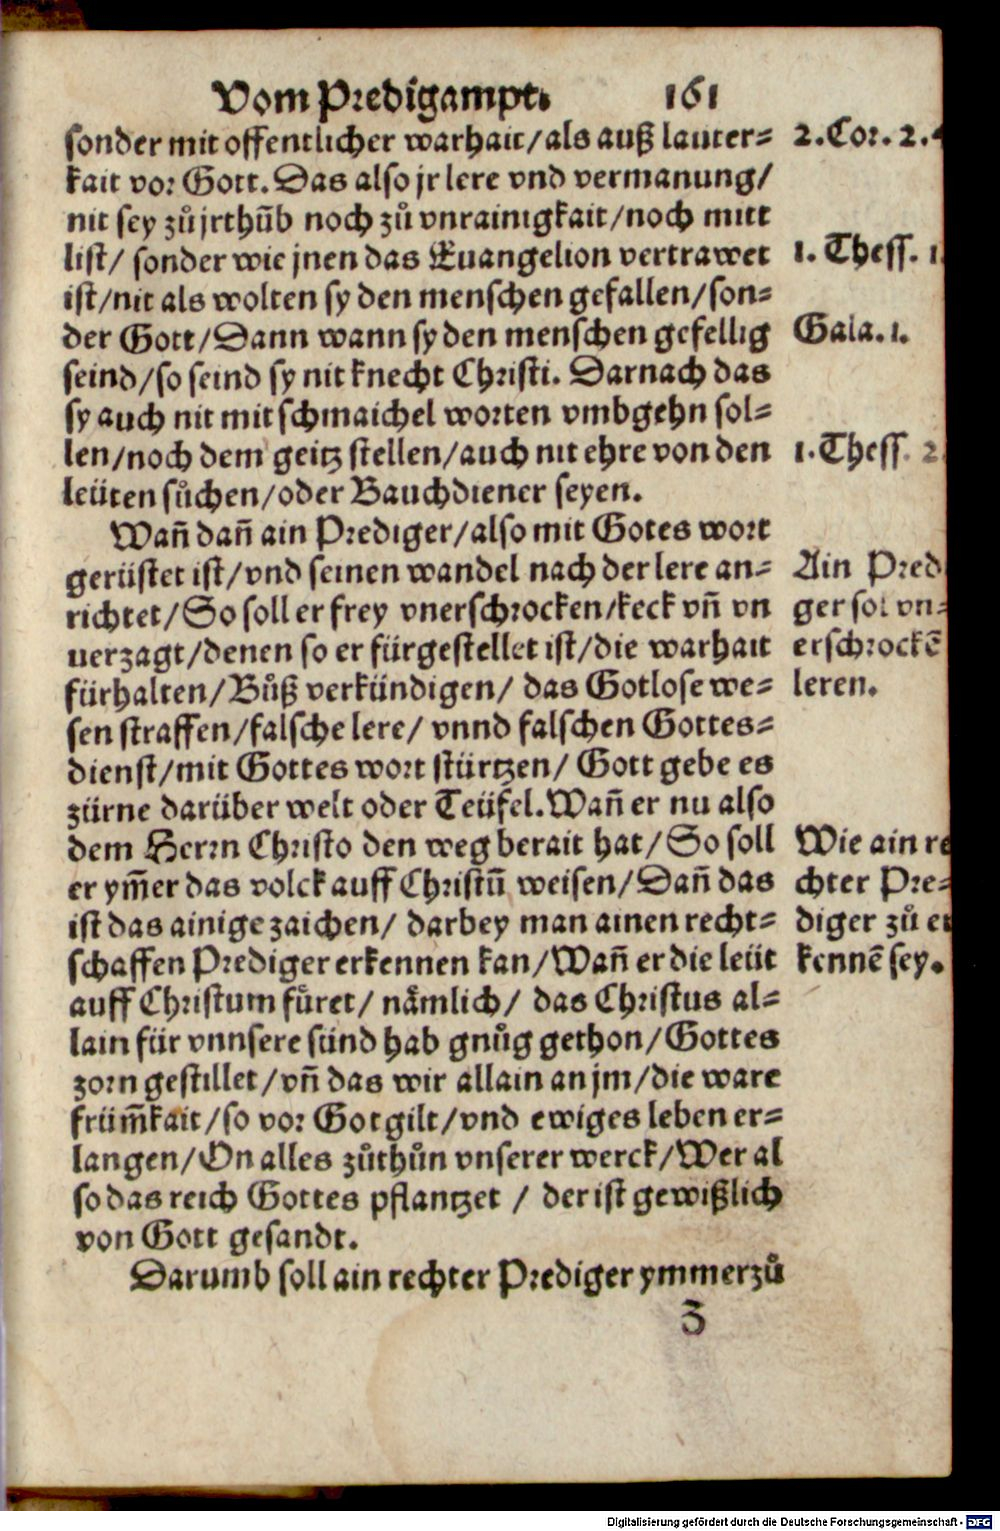 Vom Predigampt. 161
sonder mit offentlicher warhait/als auß lauter-
kait vor Gott. Das also jr lere vnd vermanung/
nit sey zů jrthůb noch zů vnrainigkait/noch mitt
list/ sonder wie jnen das Euangelion vertrawet
ist/nit als wolten sy den menschen gefallen/son-
der Gott/Dann wann sy den menschen gefellig
seind/so seind sy nit knecht Christi. Darnach das
sy auch nit mit schmaichel worten vmbgehn sol-
len/noch dem geitz stellen/auch nit ehre von den
leüten sůchen/oder Bauchdiener seyen.
Wañ dañ ain Prediger/also mit Gotes wort
gerüstet ist/vnd seinen wandel nach der lere an-
richtet/So soll er frey vnerschrocken/keck vñ vn
uerzagt/denen so er fürgestellet ist/die warhait
fürhalten/Bůß verkündigen/ das Gotlose we-
sen straffen/falsche lere/ vnnd falschen Gottes-
dienst/mit Gottes wort stürtzen/ Gott gebe es
zürne darüber welt oder Teüfel. Wañ er nu also
dem Herrn Christo den weg berait hat/So soll
er ym̃er das volck auff Christũ weisen/Dañ das
ist das ainige zaichen/ darbey man ainen recht-
schaffen Prediger erkennen kan/Wañ er die leüt
auff Christum fůret/ nämlich/ das Christus al-
lain für vnnsere sünd hab gnůg gethon/Gottes
zorn gestillet/vñ das wir allain an jm/die ware
früm̃kait/so vor Got gilt/vnd ewiges leben er-
langen/On alles zůthůn vnserer werck/Wer al
so das reich Gottes pflantzet / der ist gewißlich
von Gott gesandt.
Darumb soll ain rechter Prediger ymmerzů
Z
2. Cor. 2. 4
1. Thess. 1.
Gala. 1.
1. Thess. 2.
Ain Pred
ger sol vn-
erschrockẽ
leren.
Wie ain re
chter Pre-
diger zů er
kennẽ sey.
Digitalisierung gefördert durch die Deutsche Forschungsgemeinschaft - DFG